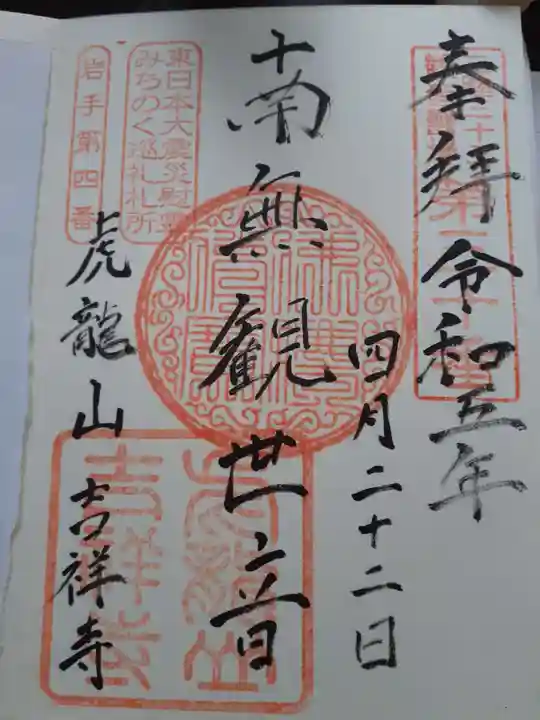 奉拝 令和五年
四月二十二日
南無観世音
東日本大震災慰霊
みちのく巡礼札所
岩手第四番
虎龍山 吉祥寺